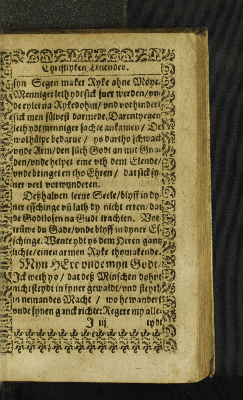 Christlyken Leuendes.
syn Segen maket Ryke ahne Möye.
Menniger leth ydt sick suer werden / vn-
de ylet na Rykedohm / vnd vorhindert
sick men sülvest darmede. Darentyegen
leth ydt menniger sachte ankamen / De
wol hülpe bedarue / ys dartho schwack
vnde Arm / den süth Godt an mit Gna-
den / vnde helpet eme vth dem Elende /
vnde bringet en tho Ehren / dat sick sy-
ner veel vorwunderen.
Deßhaluen leeue Seele / blyff in dy-
ner esschinge vñ lath dy nicht erren / dat
de Godtlosen na Gude trachten. Vor
truwe du Gade / vnde blyff in dyner Es-
schinge. Wente ydt ys dem Heren gantz
lichte / einen armen Ryke tho makende.
Myn HEre vnde myn Godt
Ick weth yo / dat des Minschen dohnt
nicht steydt in syner gewaldt / vnd steyth
in nemandes Macht / wo he wandert
vnde synen ganck richte: Regere my alle-
J iij tydt